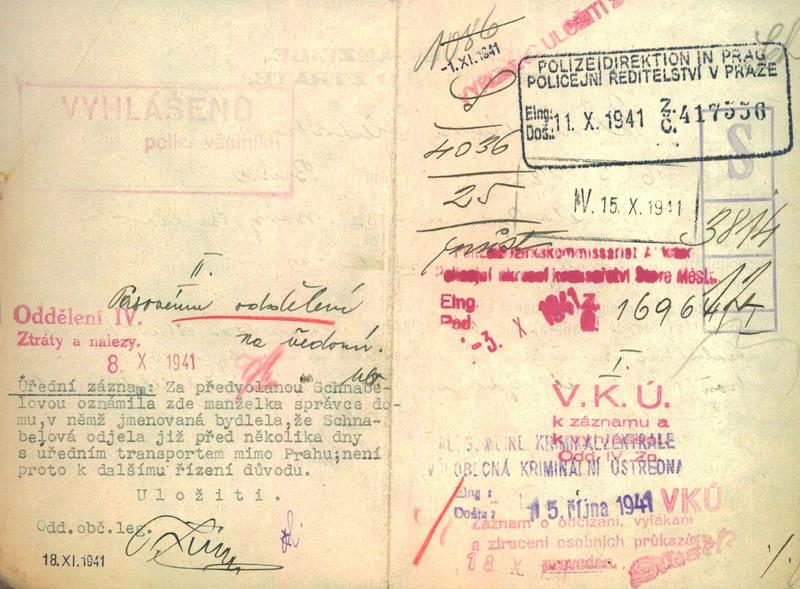 VYHLÁŠENO
policí věstníku
II.
Pasovému oddělení
na vědomí.
Oddělení IV.
Ztráty a nalezy.
8. X 1941
Úřední záznam: Za předvolanou Schnabe-
lovou oznámila zde manželka správce do-
mu,v němž jmenovaná bydlela,že Schna-
belová odjela již před několika dny
s úředním transportem mimo Prahu;není
proto k dalšímu řízení důvodu.
Uložiti.
Odd.obč.leg.
18.XI.1941
1086
-1.XI.1941
ULOŽITI
8
4036
25
POLIZEIDIREKTION IN PRAG
POLICEJNÍ ŘEDITELSTVÍ V PRAZE
Elng:
Doš.:
11. X. 1941
Z.
Č.
417556
S
IV. 15. X. 1941
3814
Policejní okresní komisařství Staré Město
Elng.
Pod.
-3. X 1941
Z.
16964
I.
V.K.Ú.
k záznamu a
k vyhlášení
Odd. IV. Zn.
KRIMINALZENTRALE
VŠEOBECNÁ KRIMINÁLNÍ ÚSTŘEDNA
Elng.:
Došlo:
15. října 1941
VKÚ
Záznam o odcizení, vylákání
a ztracení osobních průkazů
18 X
proveden.